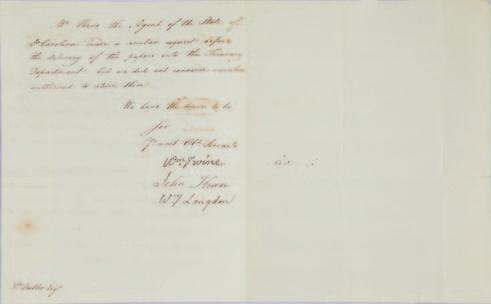 Mr Simms the Agent of the State of
So Carolina made a similar request before
the delivery of the papers into the Treasury
Department but we did not conceive ourselves
authorised to return them.
We have the honor to be
Sir
Yr most Obt Servants
Wm Irvine
John Kean
W Langdon
Pr Butler Esqr